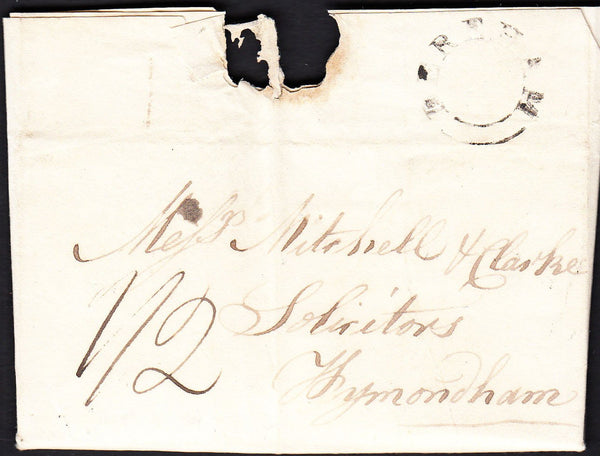 DEREHAM
Messrs Mitchell & Clarke
1/2 Solicitors
Wymondham